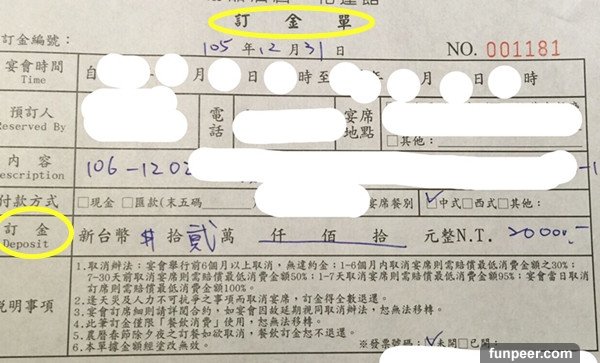 訂 金 單
訂金編號：
105 年 12 月 31 日
NO. 001181
宴會時間
Time
自 月 日 時至 年 月 日 時
預訂人
Reserved By
電話
宴席地點
□其他：
內 容
Description
106-1202
付款方式
□現金 □匯款(末五碼
宴席餐別 ☑中式□西式□其他:
訂 金
Deposit
新台幣 $ 拾 貳 萬 仟 佰 拾 元整N.T. 20000.-
說明事項
1.取消辦法：宴會舉行前6個月以上取消，無違約金；1-6個月內取消宴席則需賠償最低消費金額之30%；
7-30天前取消宴席則需賠償最低消費金額50%；1-7天取消宴席則需賠償最低消費金額95%；宴會當日取消
訂席則需賠償最低消費金額100%。
2.逢天災及人力不可抗爭之事項而取消宴席，訂金得全數退還。
3.宴會訂席細則請詳閱合約，如宴會因故延期視同取消辦法，恕無法移轉。
4.此筆訂金僅限「餐飲消費」使用，恕無法移轉。
5.農曆春節除夕夜之訂餐如欲取消，餐飲訂金恕不退還。
6.本單據金額經塗改無效。
※發票號碼：☑未開□已開：
funpeer.com